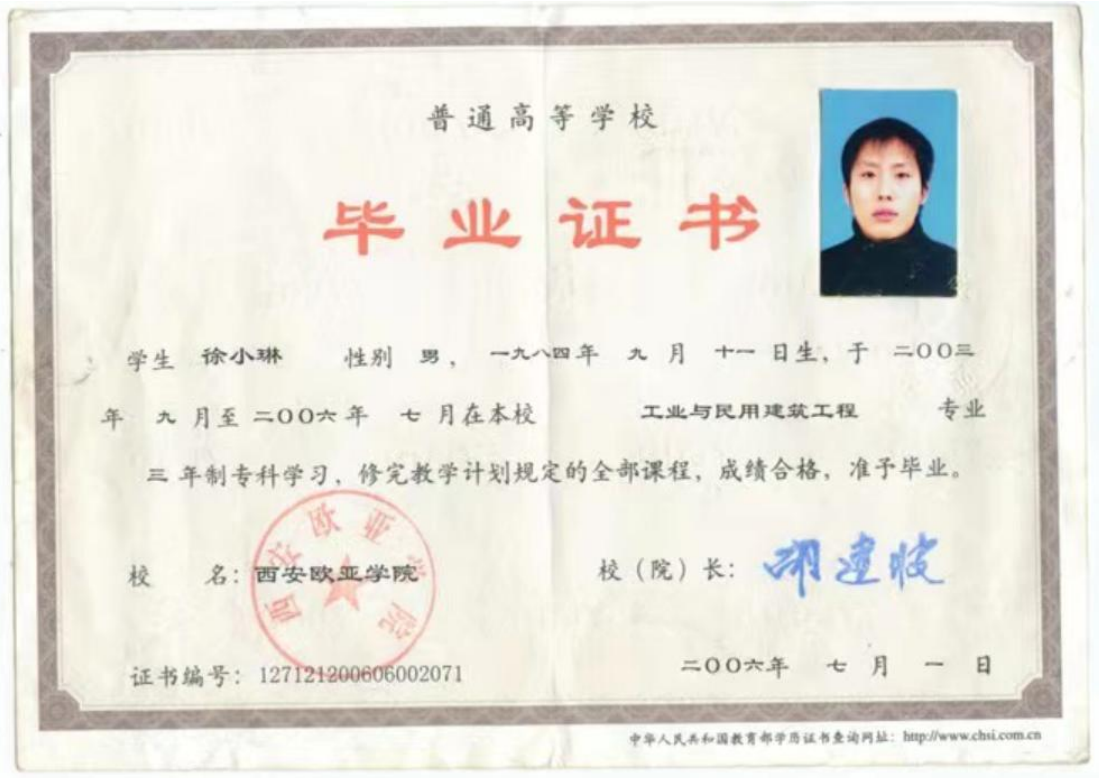 普通高等学校
毕业证书
学生 徐小琳 性别 男，一九八四年 九 月 十一 日生，于 二〇〇三
年 九 月至 二〇〇六 年 七 月在本校 工业与民用建筑工程 专业
三 年制专科学习，修完教学计划规定的全部课程，成绩合格，准予毕业。
校 名：西安欧亚学院
西安欧亚学院
校（院）长：胡建波
证书编号：127121200606002071
二〇〇六年 七 月 一 日
中华人民共和国教育部学历证书查询网址：http://www.chsi.com.cn